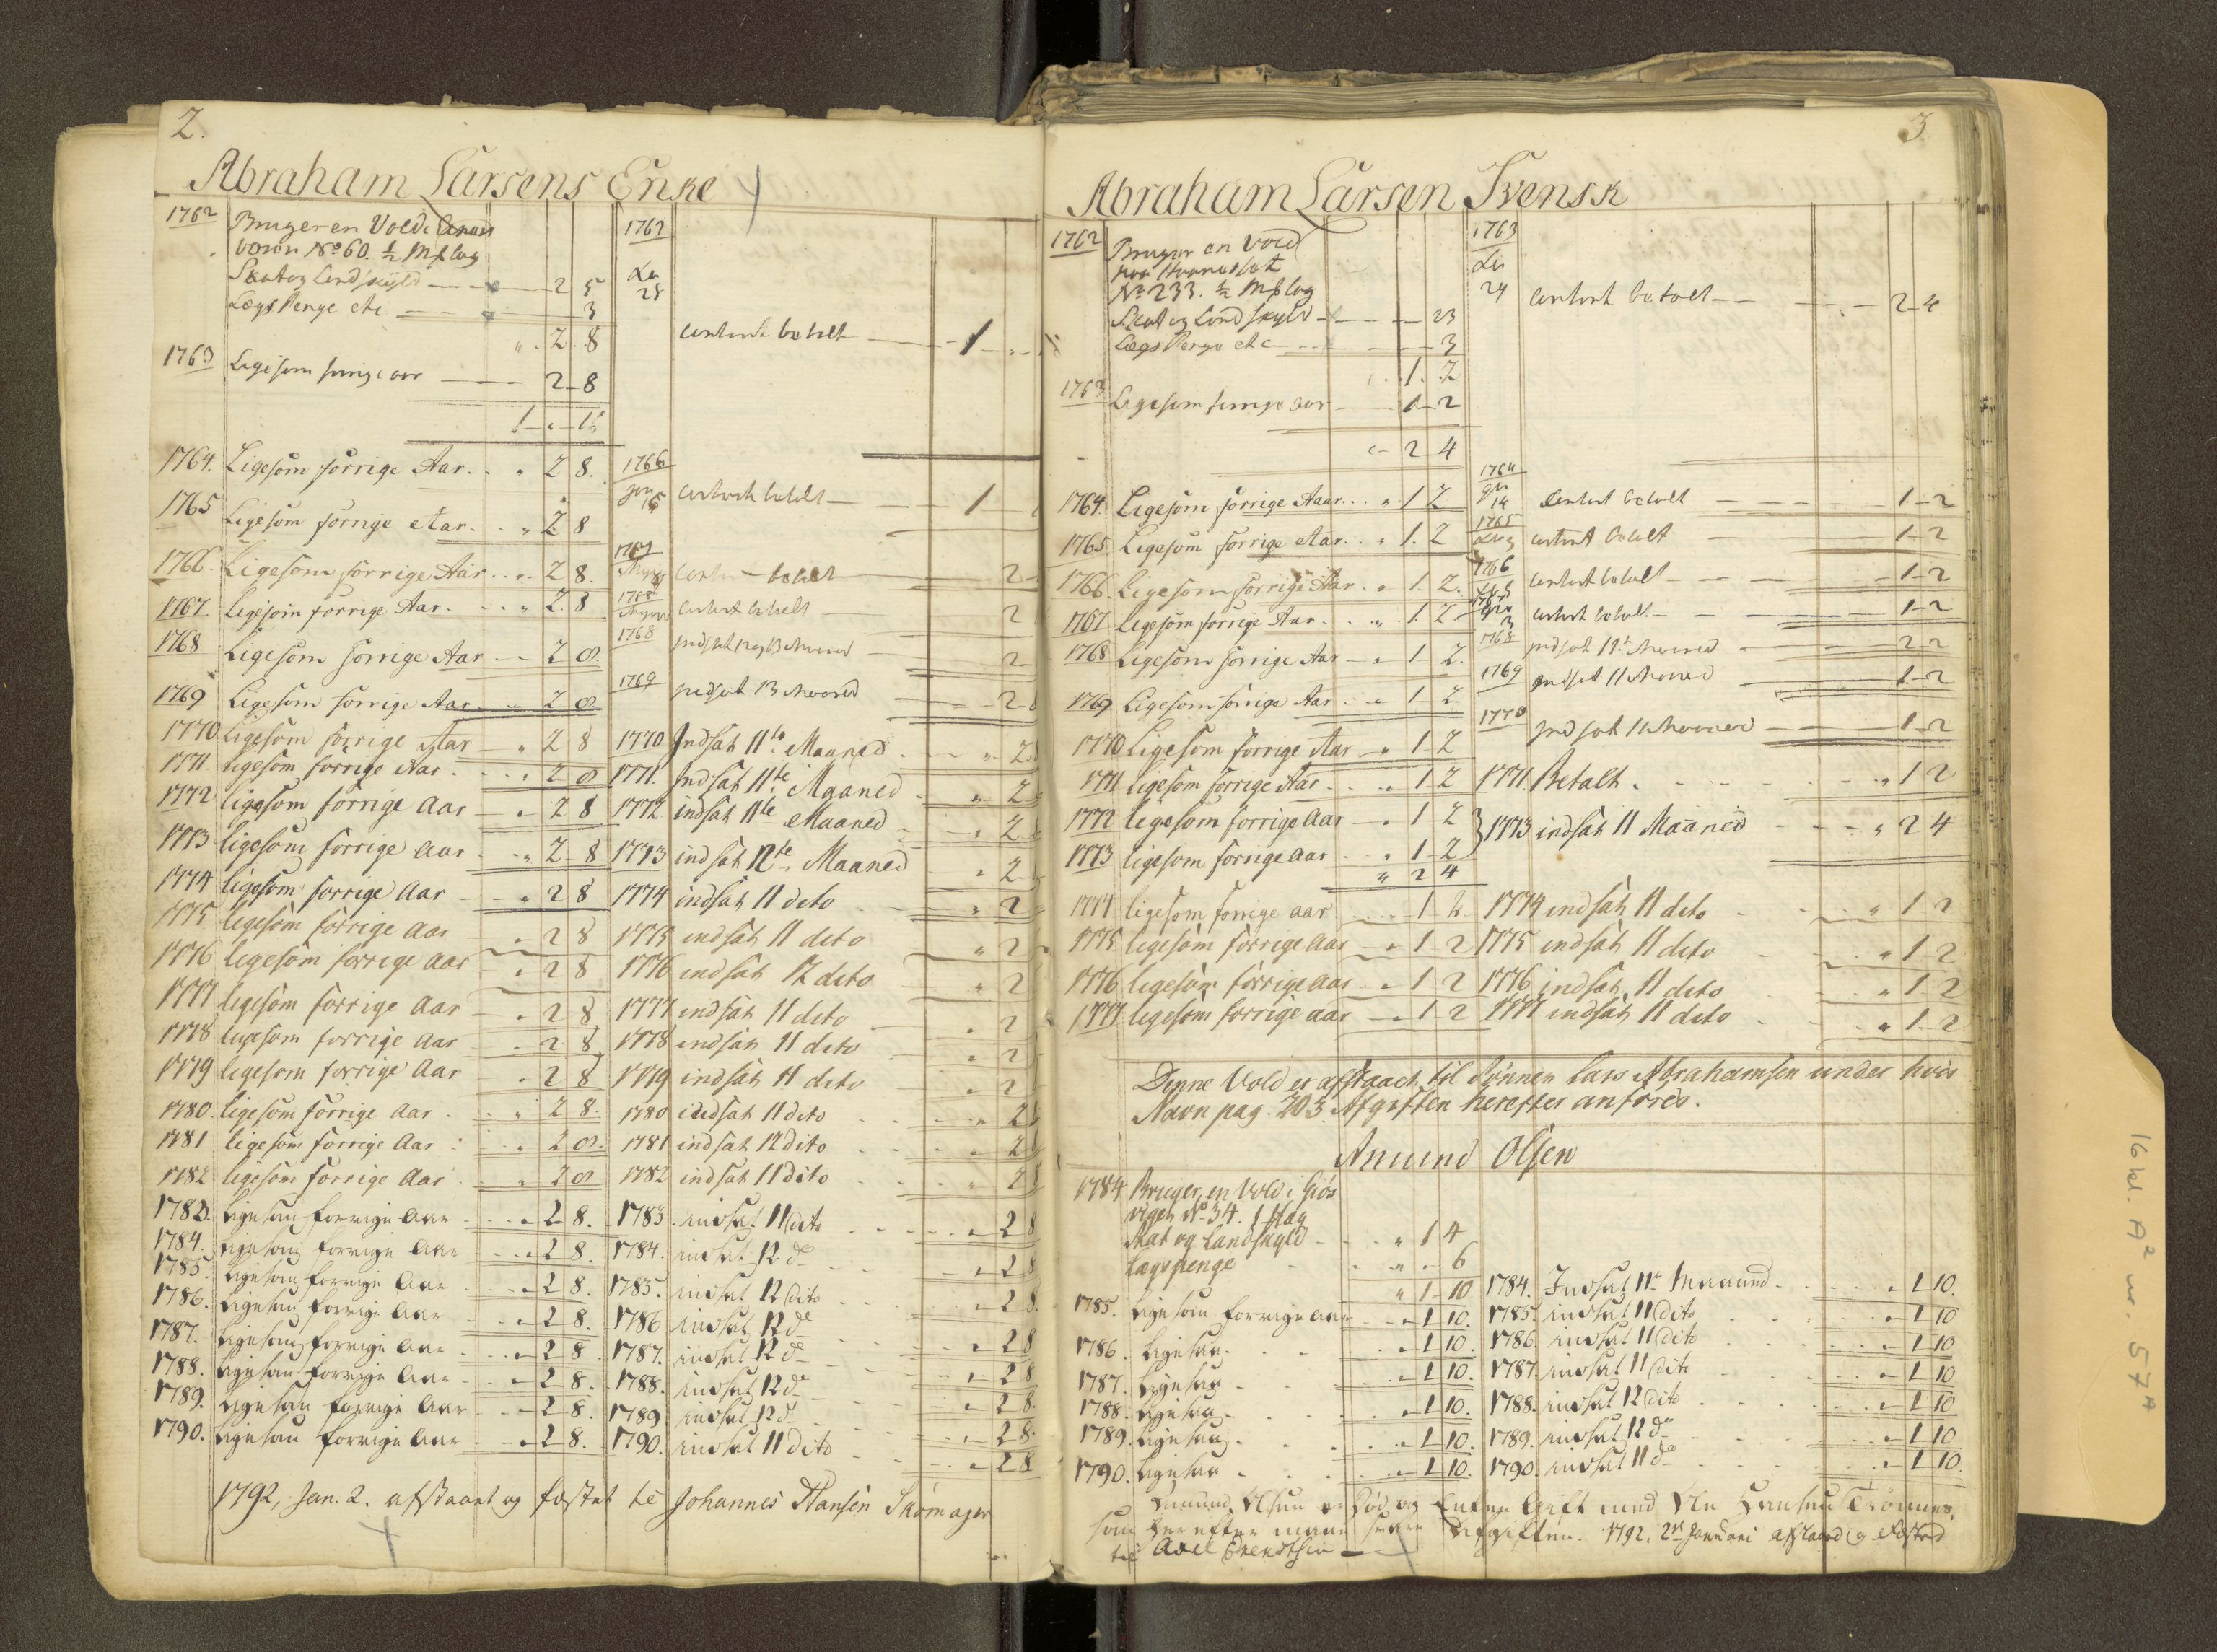 2.
Abraham Larsens Enke
1762 Bruger en Vold
No 60. 1/2 Mf lag
Skat og Landskyld 2 5
Lægs Penge etc 3
2 8
1763 Ligesom forrige aar 2 8
1
1763
28
contant betalt 1
1764. Ligesom forrige Aar 2 8.
1766
contant betalt 1
1765 Ligesom forrige Aar 2 8
1766. Ligesom forrige Aar 2 8.
1767
betalt 2
1767. Ligesom forrige Aar 2 8
1768
contant betalt 2
1768 Ligesom forrige Aar 2 8.
1768 indsat 12 og 13 Maaned 2
1769 Ligesom forrige Aar 2 8
1769 indsat 13 Maaned 2
1770 Ligesom forrige Aar 2 8 1770 Indsat 11te Maaned 2
1771. ligesom forrige Aar 2 8 1771. Indsat 11te Maaned 2
1772 ligesom forrige Aar 2 8 1772 indsat 11te Maaned 2
1773 ligesom forrige aar 2 8 1773 indsat 12te Maaned 2
1774 ligesom forrige Aar 2 8 1774 indsat 11 dito 2
1775 ligesom forrige Aar 2 8 1775 indsat 11 dito 2
1776 ligesom forrige Aar 2 8 1776 indsat 12 dito 2
1777 ligesom forrige Aar 2 8 1777 indsat 11 dito 2
1778 ligesom forrige Aar 2 8 1778 indsat 11 dito 2
1779 ligesom forrige Aar 2 8 1779 indsat 11 dito 2
1780. ligesom forrige Aar 2 8. 1780 indsat 11 dito 2
1781 ligesom forrige Aar 2 8. 1781 indsat 12 dito 2
1782 ligesom forrige Aar 2 8 1782 indsat 11 dito 2
1783. ligesom forrige Aar 2 8. 1783. indsat 11 dito 2 8
1784. ligesom forrige Aar 2 8. 1784. indsat 12 do 2 8
1785. ligesom forrige Aar 2 8. 1785. indsat 12 dito 2 8.
1786. ligesom forrige Aar 2 8. 1786 indsat 12 do 2 8
1787. ligesom forrige Aar 2 8. 1787. indsat 12 do 2 8
1788. ligesom forrige Aar 2 8. 1788. indsat 12 do 2 8.
1789. ligesom forrige Aar 2 8. 1789 indsat 12 d 2 8.
1790. ligesom forrige Aar 2 8. 1790. indsat 11 dito 2 8
1792, Jan. 2. afstaaet og fæstet til Johannes Hansen Skomager
3.
Abraham Larsen Svensk
1762 Bruger en Vold
paa
No 233. 1/2 Mf lag
Skat og Landskyld 23
Lægs Penge etc 3
1. 2
1763
24 contant betalt 2 4
1763 Ligesom forrige aar 1 2
2 4
1764. Ligesom forrige Aaar 1 2
1764
14 contant betalt 1 2
1765 Ligesom forrige Aar 1. 2
1765
contant betalt 1 2
1766. Ligesom forrige Aar 1 2.
1766
contant betalt 1 2
1767. Ligesom forrige Aar 1 2
3 contant betalt 1 2
1768. Ligesom forrige Aar 1 2. 1768 indsat Maaned 2 2
1769 Ligesom forrige Aar 1 2 1769 indsat 11 Maaned 1 2
1770 Ligesom forrige Aar 1 2 1770 indsat 11 Maaned 1 2
1771 ligesom forrige Aar 1 2 1771. Betalt. 1 2
1772 ligesom forrige Aar 1 2
1773 ligesom forrige aar 1 2 1773 indsat 11 Maaned 2 4
2 4
1774 ligesom forrige aar 1 2 1774 indsat 11 dito 1 2
1775 ligesom forrige Aar 1 2 1775 indsat 11 dito 1 2
1776 ligesom forrige aar 1 2 1776 indsat 11 dito 1 2
1777 ligesom forrige aar 1 2 1777 indsat 11 dito 1 2
Denne Vold er afstaaet til Sønnen Lars Abrahamsen under hvis
Navn pag. 203 Afgiften herefter anføres.
Amund Olsen
1784 Bruger en Vold i
vigen No 34. 1 flag
Skat og Landskyld 1 4
lægspenge 6
1 10 1784. Indsat 11te Maaned 1 10.
1785. ligesom forrige aar 1 10. 1785. indsat 11 dito 1 10
1786. ligesaa 1 10. 1786. indsat 11 dito 1 10
1787. ligesaa 1 10. 1787. indsat 11 dito 1 10
1788. ligesaa 1 10. 1788. indsat 12 dito 1 10
1789. ligesaa 1 10. 1789. indsat 12 do 1 10
1790. ligesaa 1 10. 1790. indsat 11 do 1 10.
Amund Olsen er død og Enken gift med Ole Hansen
som herefter maae svare Afgiften. 1792, 2den Januari afstaaed og Fæsted
til Axel
16 kl. A2 nr. 57A